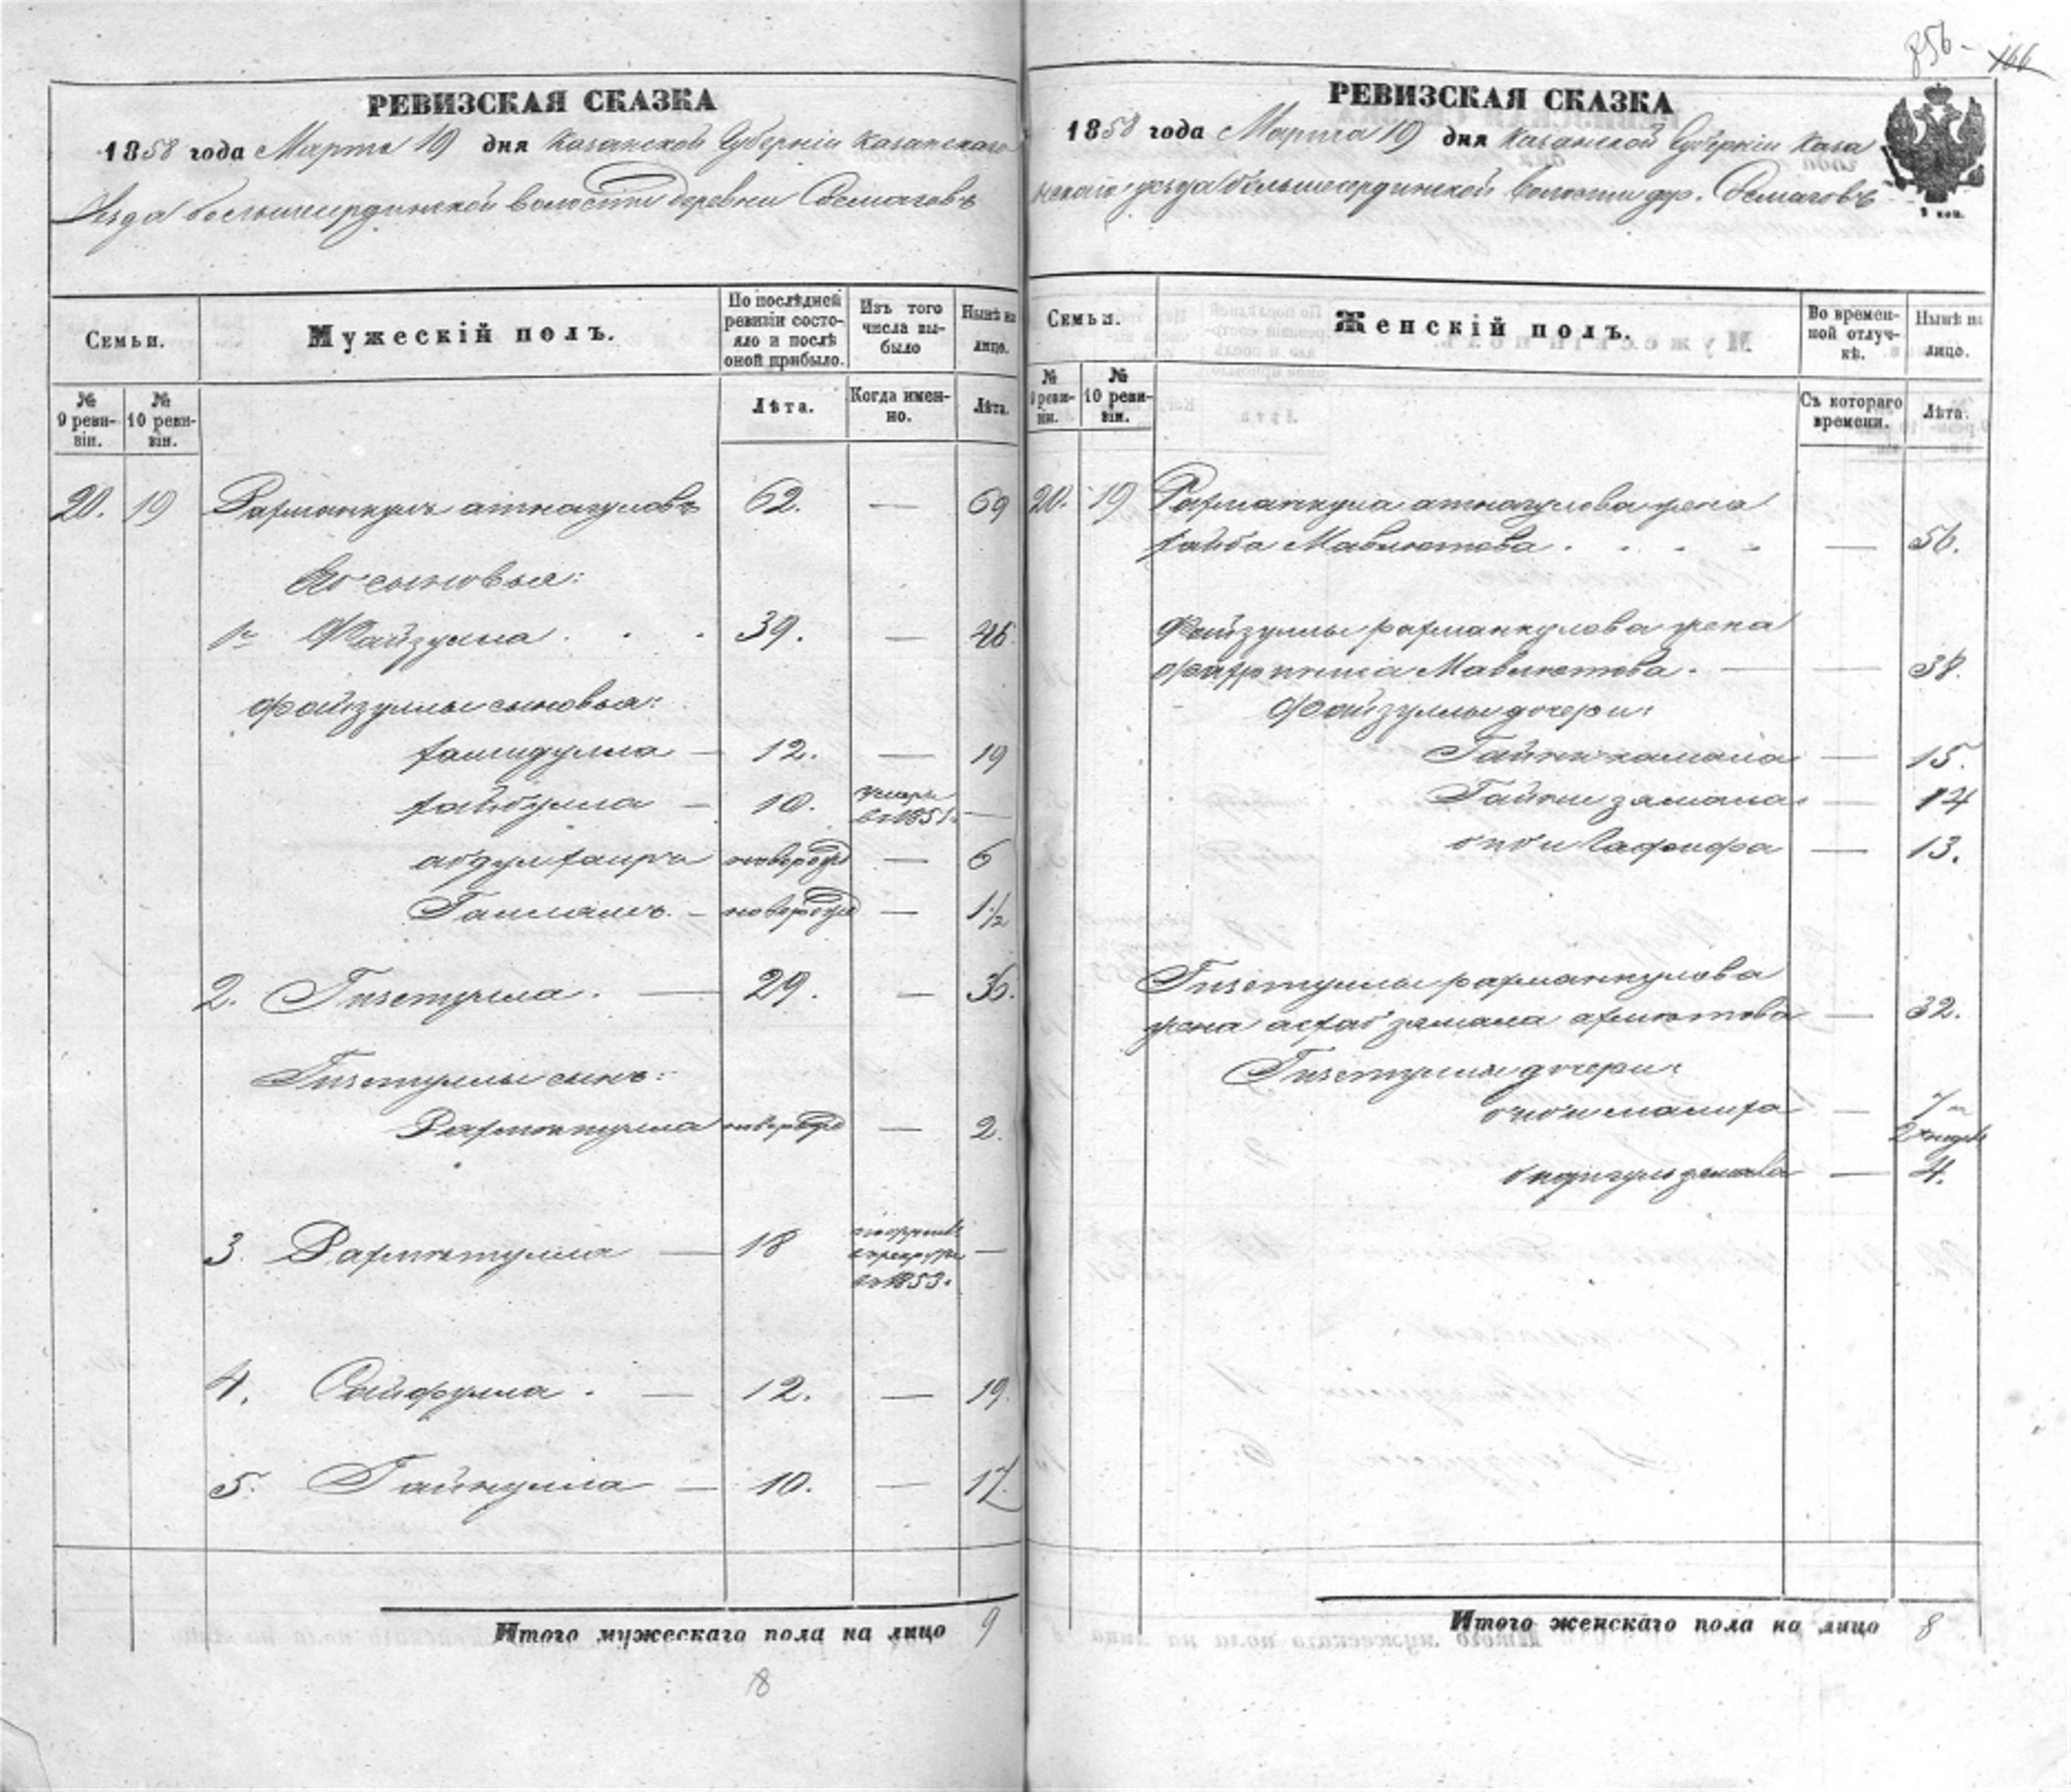 856. 166
РЕВИЗСКАЯ СКАЗКА
1858 года Марта 19 дня Казанской Губерніи Казанскаго
Уѣзда большесердинской волости деревни
Семьи.
Мужескій полъ.
По послѣдней ревизіи состояло и послѣ оной прибыло.
Изъ того числа выбыло
Нынѣ на лицо.
№ 9 ревизіи.
№ 10 ревизіи.
Лѣта.
Когда именно.
Лѣта.
20. 19 Рахманкулъ атнагуловъ 62. — 69
Его сыновья:
1й Файзулла . . . 39. — 46.
Файзуллы сыновья:
хамидулла — 12. — 19
хайбулла — 10. умеръ въ 1851. —
абдулхаиръ новорожд — 6
Галлямъ. — новорожд — 1 1/2
2. Гизетулла. — 29. — 36.
Гизетуллы сынъ:
Рахметулла новорожд — 2.
3. Рахметулла — 18 въ рекруты въ 1853. —
4. Сайфулла . — 12. — 19.
5. Гайнулла — 10. — 17.
Итого мужескаго пола на лицо 9
8
РЕВИЗСКАЯ СКАЗКА
1858 года Марта 19 дня Казанской Губерніи Каза
нскаго уѣзда большесердинской волости дер.
2 коп.
Семьи.
Женскій полъ.
Во временной отлучкѣ.
Нынѣ на лицо.
№ 9 ревизіи.
№ 10 ревизіи.
Съ котораго времени.
Лѣта.
20. 19 Рахманкула атнагулова жена
Мавлютова . . . . — 56.
Файзуллы рахманкулова жена
Мавлютова. — — 38.
Файзуллы дочери:
Гайникамала — 15.
Гайнизямала — 14
биби Гафифа — 13.
Гизетуллы рахманкулова
жена асхабзямала ахметова — 32.
Гизетуллы дочери:
бибимамира — 7
— 4.
Итого женскаго пола на лицо 8